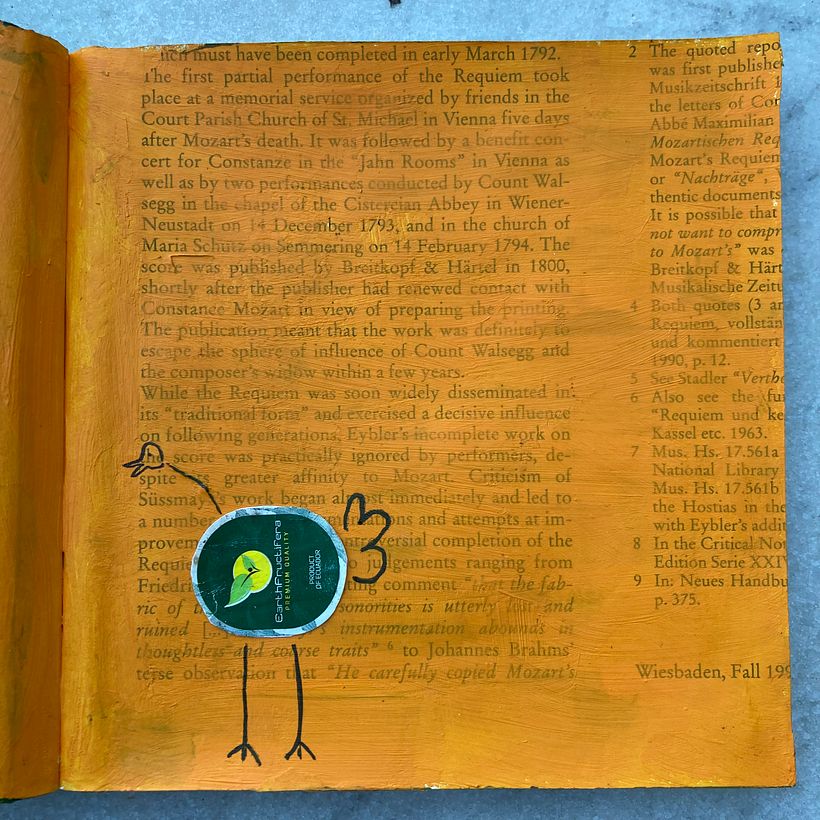 must have been completed in early March 1792.
The first partial performance of the Requiem took
place at a memorial service organized by friends in the
Court Parish Church of St. Michael in Vienna five days
after Mozart's death. It was followed by a benefit con-
cert for Constanze in the "Jahn Rooms" in Vienna as
well as by two performances conducted by Count Wal-
segg in the chapel of the Cistercian Abbey in Wiener-
Neustadt on 14 December 1793, and in the church of
Maria Schutz on Semmering on 14 February 1794. The
score was published by Breitkopf & Härtel in 1800,
shortly after the publisher had renewed contact with
Constance Mozart in view of preparing the printing.
The publication meant that the work was definitely to
escape the sphere of influence of Count Walsegg and
the composer's widow within a few years.
While the Requiem was soon widely disseminated in
its "traditional form" and exercised a decisive influence
on following generations, Eybler's incomplete work on
score was practically ignored by performers, de-
spite its greater affinity to Mozart. Criticism of
Süssmayr's work began almost immediately and led to
a number and attempts at im-
provem controversial completion of the
Requi judgements ranging from
Friedri comment "that the fab-
ric of sonorities is utterly lost and
ruined [...] instrumentation abounds in
thoughtless and coarse traits" 6 to Johannes Brahms'
terse observation that "He carefully copied Mozart's
EarthFructifera
PREMIUM QUALITY
PRODUCT
OF ECUADOR
2 The quoted repo
was first publishe
Musikzeitschrift 1
the letters of Con
Abbé Maximilian
Mozartischen Req
Mozart's Requiem
or "Nachträge",
thentic documents
It is possible that
not want to compr
to Mozart's" was
Breitkopf & Härt
Musikalische Zeitu
4 Both quotes (3 an
Requiem, vollstän
und kommentiert
1990, p. 12.
5 See Stadler "Verthe
6 Also see the fu
"Requiem und ke
Kassel etc. 1963.
7 Mus. Hs. 17.561a
National Library
Mus. Hs. 17.561b
the Hostias in the
with Eybler's addit
8 In the Critical Not
Edition Serie XXIV
9 In: Neues Handbu
p. 375.
Wiesbaden, Fall 199